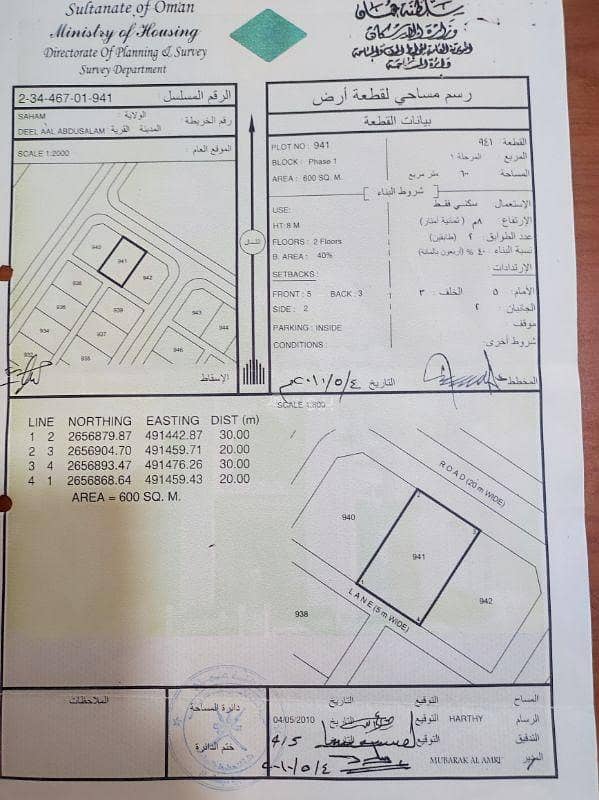 Sultanate of Oman
Ministry of Housing
Directorate Of Planning & Survey
Survey Department
سلطنة عمان
وزارة الإسكان
دائرة المساحة
2-34-467-01-941 الرقم المسلسل :
SAHAM الولاية :
رقم الخريطة :
DEEL AAL ABDUSALAM المدينة القرية :
SCALE 1:2000 الموقع العام :
940
941
942
938
939
936
937
934
935
932
943
944
946
الإسقاط
الشمال
رسم مساحي لقطعة أرض
بيانات القطعة
PLOT NO : 941 القطعة ٩٤١
BLOCK : Phase 1 المربع المرحلة ١
AREA : 600 SQ. M. المساحة ٦٠٠ متر مربع
شروط البناء
USE: الإستعمال سكني فقط
HT: 8 M الإرتفاع ٨م (ثمانية أمتار)
FLOORS : 2 Floors عدد الطوابق ٢ (طابقين)
B. AREA : 40% نسبة البناء ٤٠ % (أربعون بالمائة)
SETBACKS : الإرتدادات
FRONT : 5 BACK : 3 الأمام: ٥ الخلف : ٣
SIDE : 2 الجانبان : ٢
PARKING : INSIDE موقف :
CONDITIONS : شروط أخرى:
المخطط التاريخ ٢٠١٠/٥/٤م
SCALE 1:500
LINE NORTHING EASTING DIST (m)
1 2 2656879.87 491442.87 30.00
2 3 2656904.70 491459.71 20.00
3 4 2656893.47 491476.26 30.00
4 1 2656868.64 491459.43 20.00
AREA = 600 SQ. M.
ROAD (20 m WIDE)
940
941
942
LANE (5 m WIDE)
938
الملاحظات
دائرة المساحة
ختم الدائرة
المساح التوقيع التاريخ
الرسام HARTHY التوقيع التاريخ 04/05/2010
التدقيق التوقيع التاريخ 4/5
المدير MUBARAK AL AMRI ٢٠١٠/٥/٤